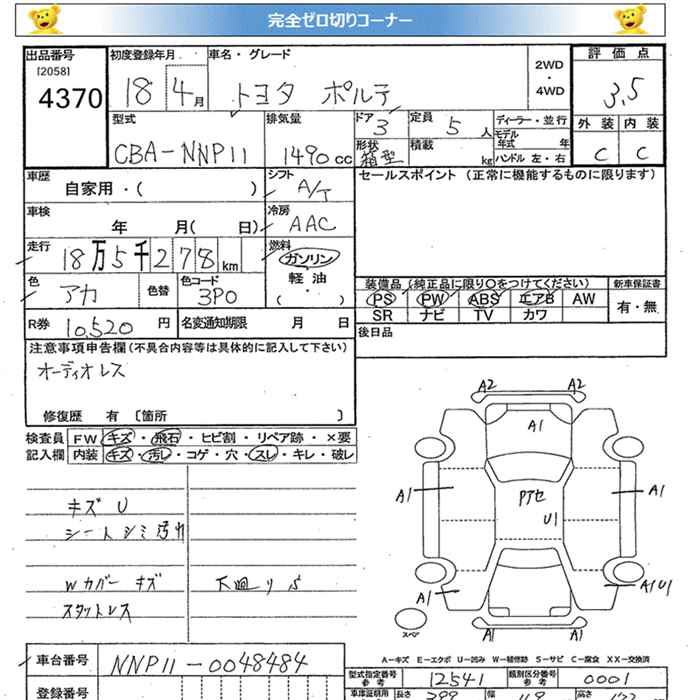 完全ゼロ切りコーナー
出品番号 [2058] 4370
初度登録年月 18 4月
車名・グレード トヨタ ポルテ
2WD・4WD
評価点 3.5
外装 内装
C C
型式 CBA-NNP11
排気量 1490cc
ドア 3
形状 箱型
定員 5人
積載 kg
ディーラー・並行
モデル年式 年
ハンドル 左・右
車歴 自家用・( )
シフト A/T
セールスポイント (正常に機能するものに限ります)
車検 年 月( 日)
冷房 AAC
走行 18万5千278km
燃料 ガソリン
軽油
( ・ )
色 アカ
色替
色コード 3P0
装備品 (純正品に限り○をつけてください)
新車保証書
PS PW ABS エアB AW
有・無
SR ナビ TV カワ
R券 10,520円
名変通知期限 月 日
後日品
注意事項申告欄(不具合内容等は具体的に記入して下さい)
オーディオレス
修復歴 有 〔箇所 〕
検査員 FW キズ・飛石・ヒビ割・リペア跡・×要
記入欄 内装 キズ・汚レ・コゲ・穴・スレ・キレ・破レ
A2 A2
A1
A1 Pアセ A1
U1
A1 A1U1
A1 A1
スペア
キズ U
シートシミ汚れ
Wカバーキズ 下廻りS
スタットレス
A-キズ E-エクボ U-凹み W-補修跡 S-サビ C-腐食 XX-交換済
車台番号 NNP11-0048484
型式指定番号 参考 12541
類別区分番号 参考 0001
登録番号
車庫証明用 長さ 399 幅 高さ